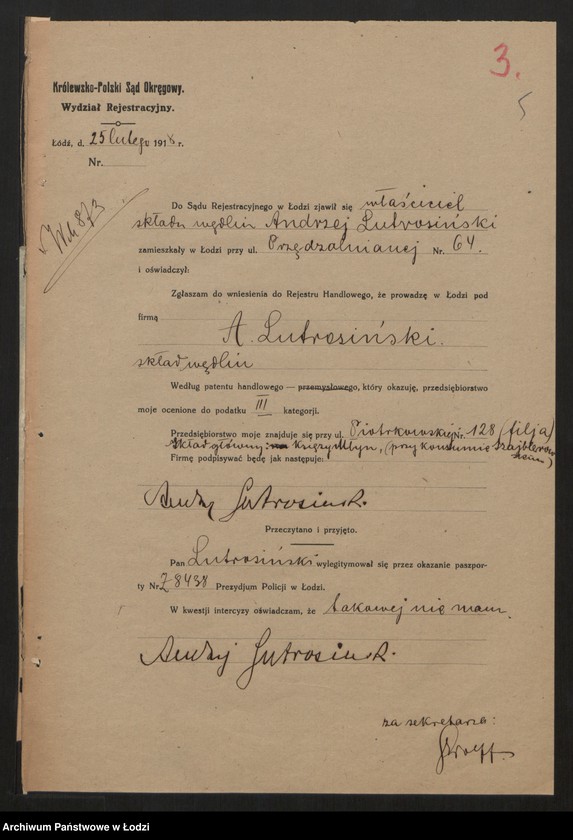 3.
5
Królewsko-Polski Sąd Okręgowy.
Wydział Rejestracyjny.
Łódź, d. 25 lutego 1918 r.
Nr.
873
Do Sądu Rejestracyjnego w Łodzi zjawił się właściciel
składu wędlin Andrzej Lutrosiński
zamieszkały w Łodzi przy ul. Przędzalnianej Nr. 64.
i oświadczył:
Zgłaszam do wniesienia do Rejestru Handlowego, że prowadzę w Łodzi pod
firmą
A. Lutrosiński.
skład wędlin
Według patentu handlowego — przemysłowego, który okazuję, przedsiębiorstwo
moje ocenione do podatku III kategorji.
Przedsiębiorstwo moje znajduje się przy ul. Piotrkowskiej Nr. 128 (filja)
skład główny: Księży Młyn, (przy konsumie Szajblerowskim)
Firmę podpisywać będę jak następuje:
Andrzej Lutrosiński.
Przeczytano i przyjęto.
Pan Lutrosiński wylegitymował się przez okazanie paszpor-
ty Nr. 78438 Prezydjum Policji w Łodzi.
W kwestji intercyzy oświadczam, że takowej nie mam.
Andrzej Lutrosiński.
za sekretarza:
Archiwum Państwowe w Łodzi